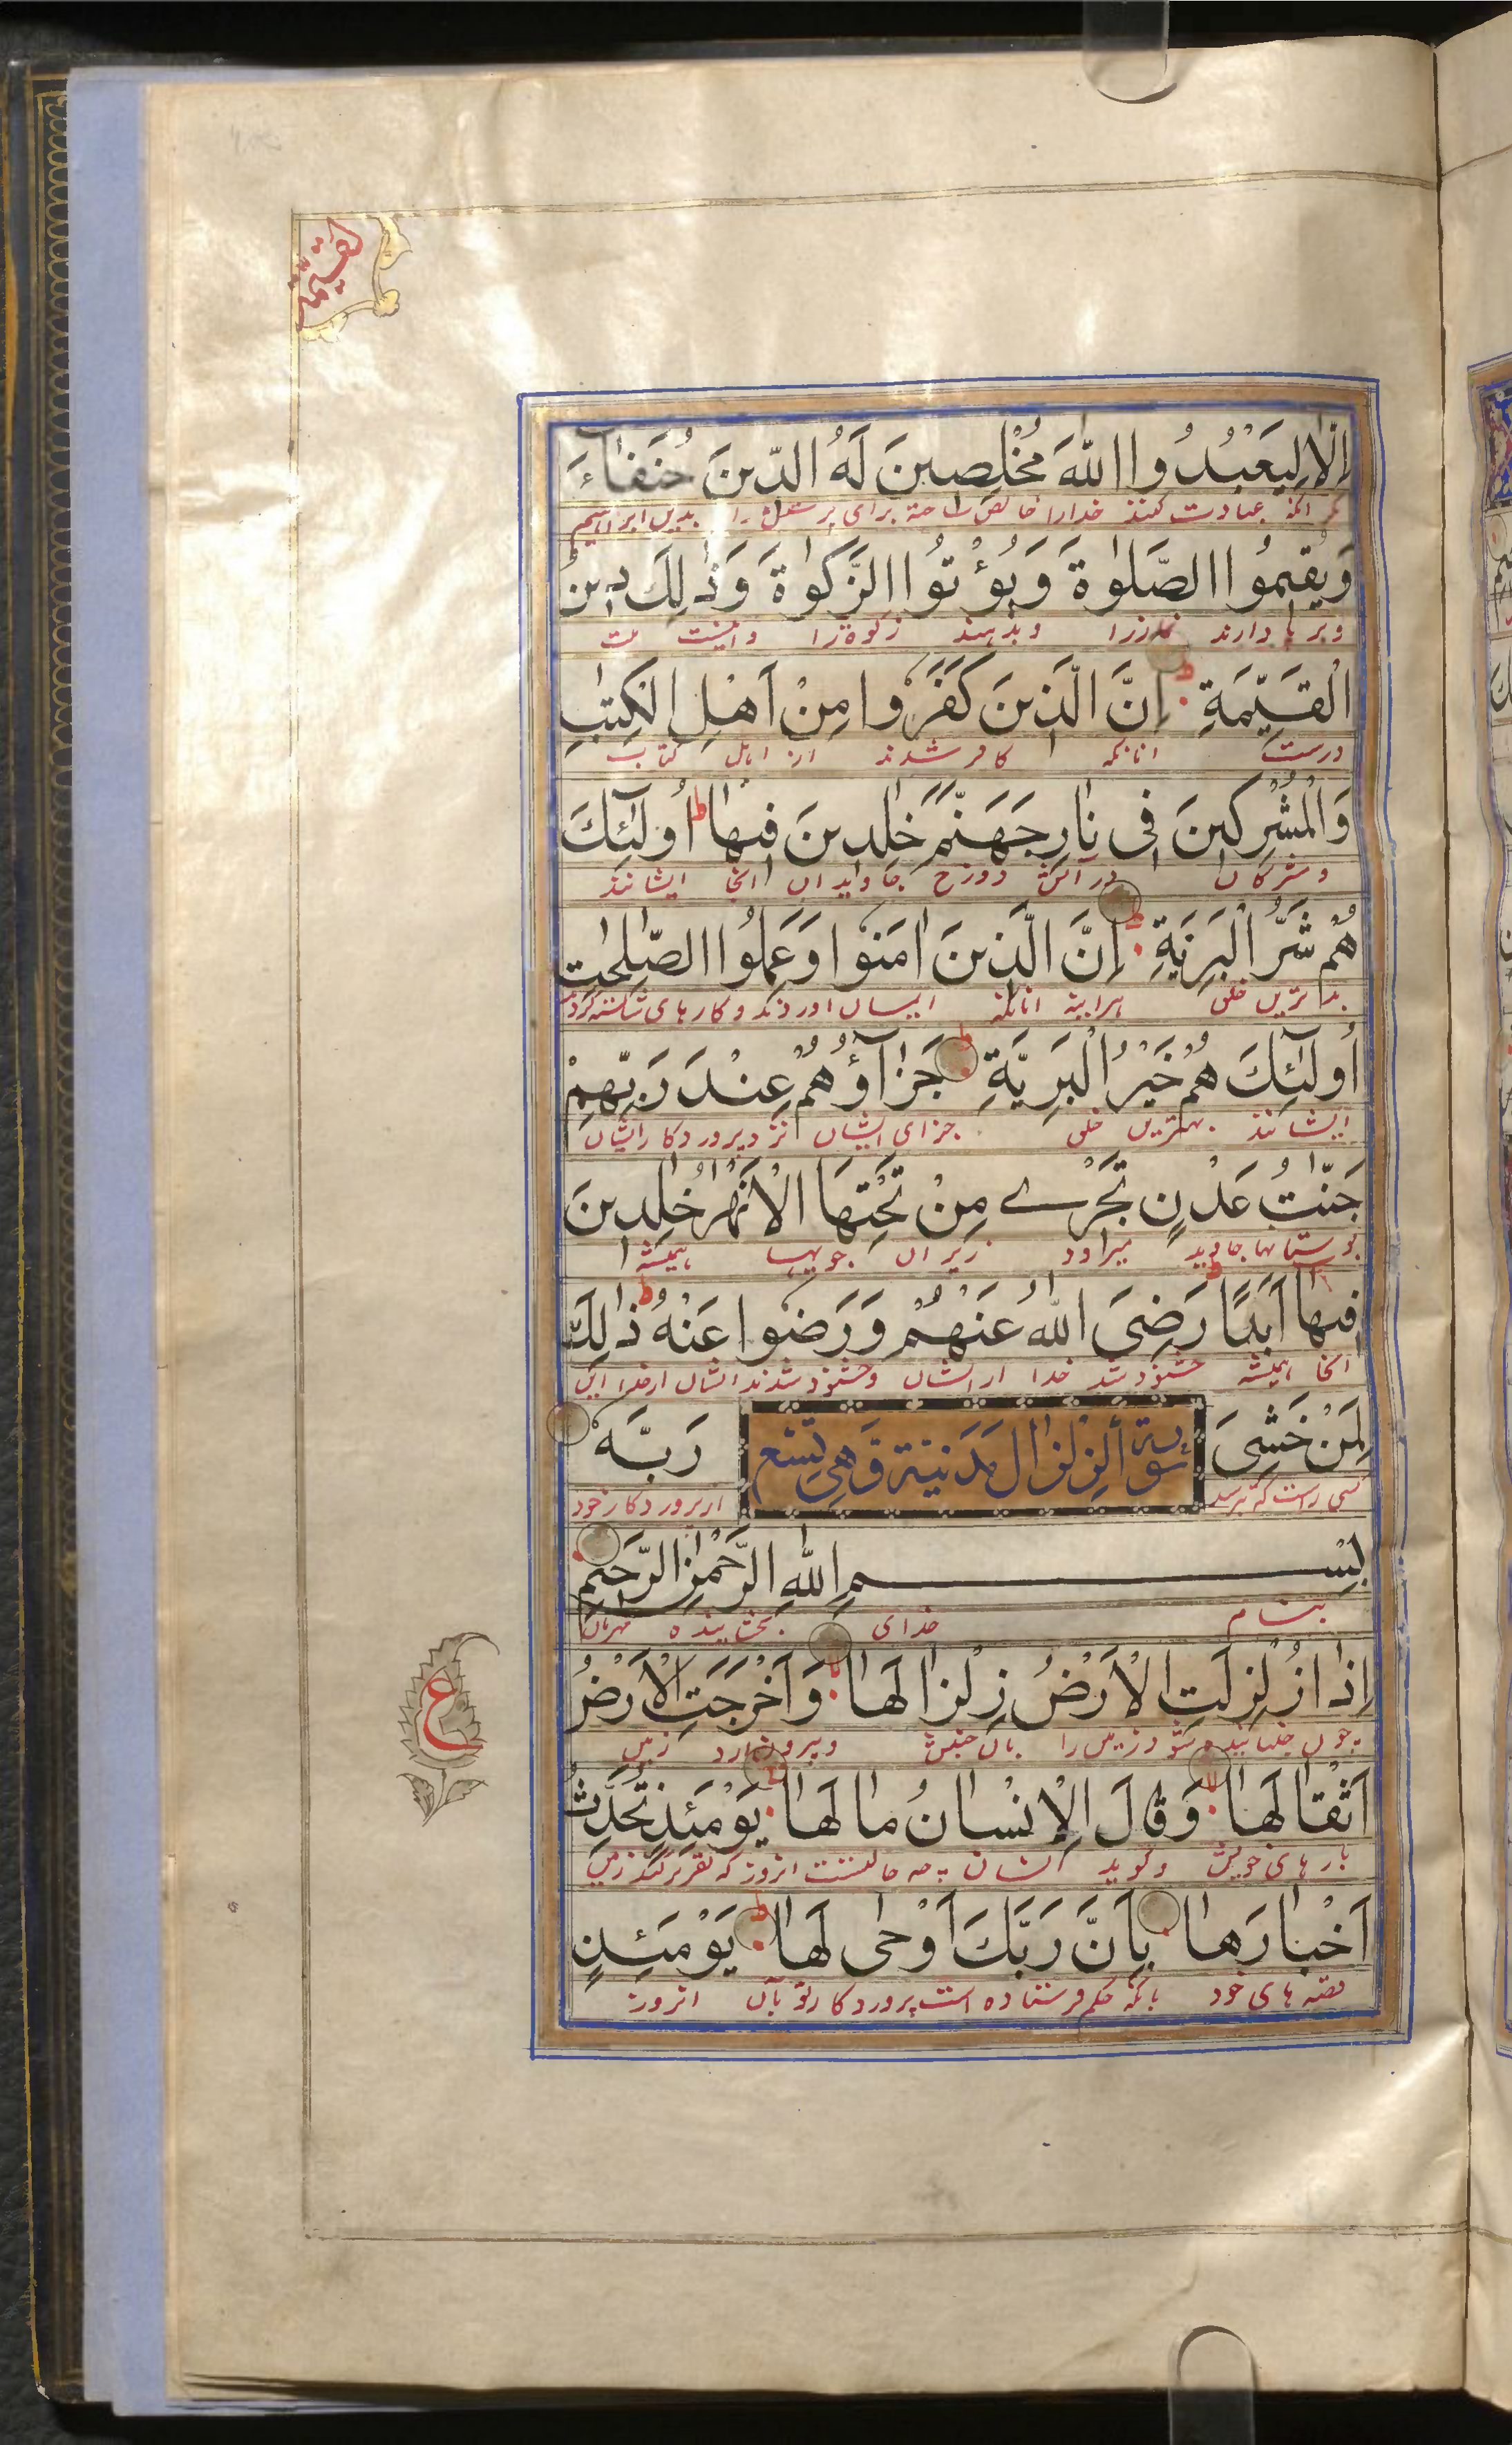 القيمة
اِلَّا لِيَعْبُدُوا اللّٰهَ مُخْلِصِينَ لَهُ الدّينَ حُنَفَآءَ
مگر آنکه عبادت کنند خدا را خالص ساخته برای پرستش را بدین ابراهیم
وَيُقيمُوا الصَّلٰوةَ وَيُؤْتُوا الزَّكٰوةَ وَذٰلِكَ دينُ
وبرپا دارند نماز را وبدهند زکوة را واینست ملت
الْقَيِّمَةِ اِنَّ الَّذينَ كَفَرُوا مِنْ اَهْلِ الْكِتٰبِ
درست آنانکه کافر شدند از اهل کتاب
وَالْمُشْرِكينَ فى نارِ جَهَنَّمَ خٰلِدينَ فيها ط اُولٰٓئِكَ
ومشرکان در آتش دوزخ جاویدان آنجا ایشانند
هُمْ شَرُّ الْبَرِيَّةِ اِنَّ الَّذينَ اٰمَنُوا وَعَمِلُوا الصّٰلِحٰتِ
بدترین خلق هرآینه آنانکه ایمان آوردند وکارهای شایسته کردند
اُولٰٓئِكَ هُمْ خَيْرُ الْبَرِيَّةِ ط جَزٰآؤُهُمْ عِنْدَ رَبِّهِمْ
ایشانند بهترین خلق جزای ایشان نزد پروردکار ایشان
جَنّٰتُ عَدْنٍ تَجْرے مِنْ تَحْتِهَا الْاَنْهٰرُ خٰلِدينَ
بوستانها جاوید میرود زیر آن جویها همیشه
فيها اَبَدًا ط رَضِىَ اللّٰهُ عَنْهُمْ وَرَضُوا عَنْهُ ط ذٰلِكَ
آنجا همیشه خشنود شد خدا از ایشان وخشنود شدند ایشان از خدا این
لِمَنْ خَشِىَ سورة الزلزال مدنية وهي تسع رَبَّهُ
کسی راست که بترسد از پروردکار خود
بِسْمِ اللّٰهِ الرَّحْمٰنِ الرَّحيمِ
بنام خدای بخشاینده مهربان
اِذا زُلْزِلَتِ الْاَرْضُ زِلْزالَها وَاَخْرَجَتِ الْاَرْضُ
چون جنبانیده شود زمین را بآن جنبش وبیرون آرد زمین
اَثْقالَها وَقالَ الْاِنْسانُ ما لَها يَوْمَئِذٍ تُحَدِّثُ
بارهای خویش وکوید انسان چه حالتست آنروز که تقریر کند زمین
ع
اَخْبارَها بِاَنَّ رَبَّكَ اَوْحٰى لَها ط يَوْمَئِذٍ
قصه های خود بآنکه حکم فرستاده است پروردکار تو بآن آنروز